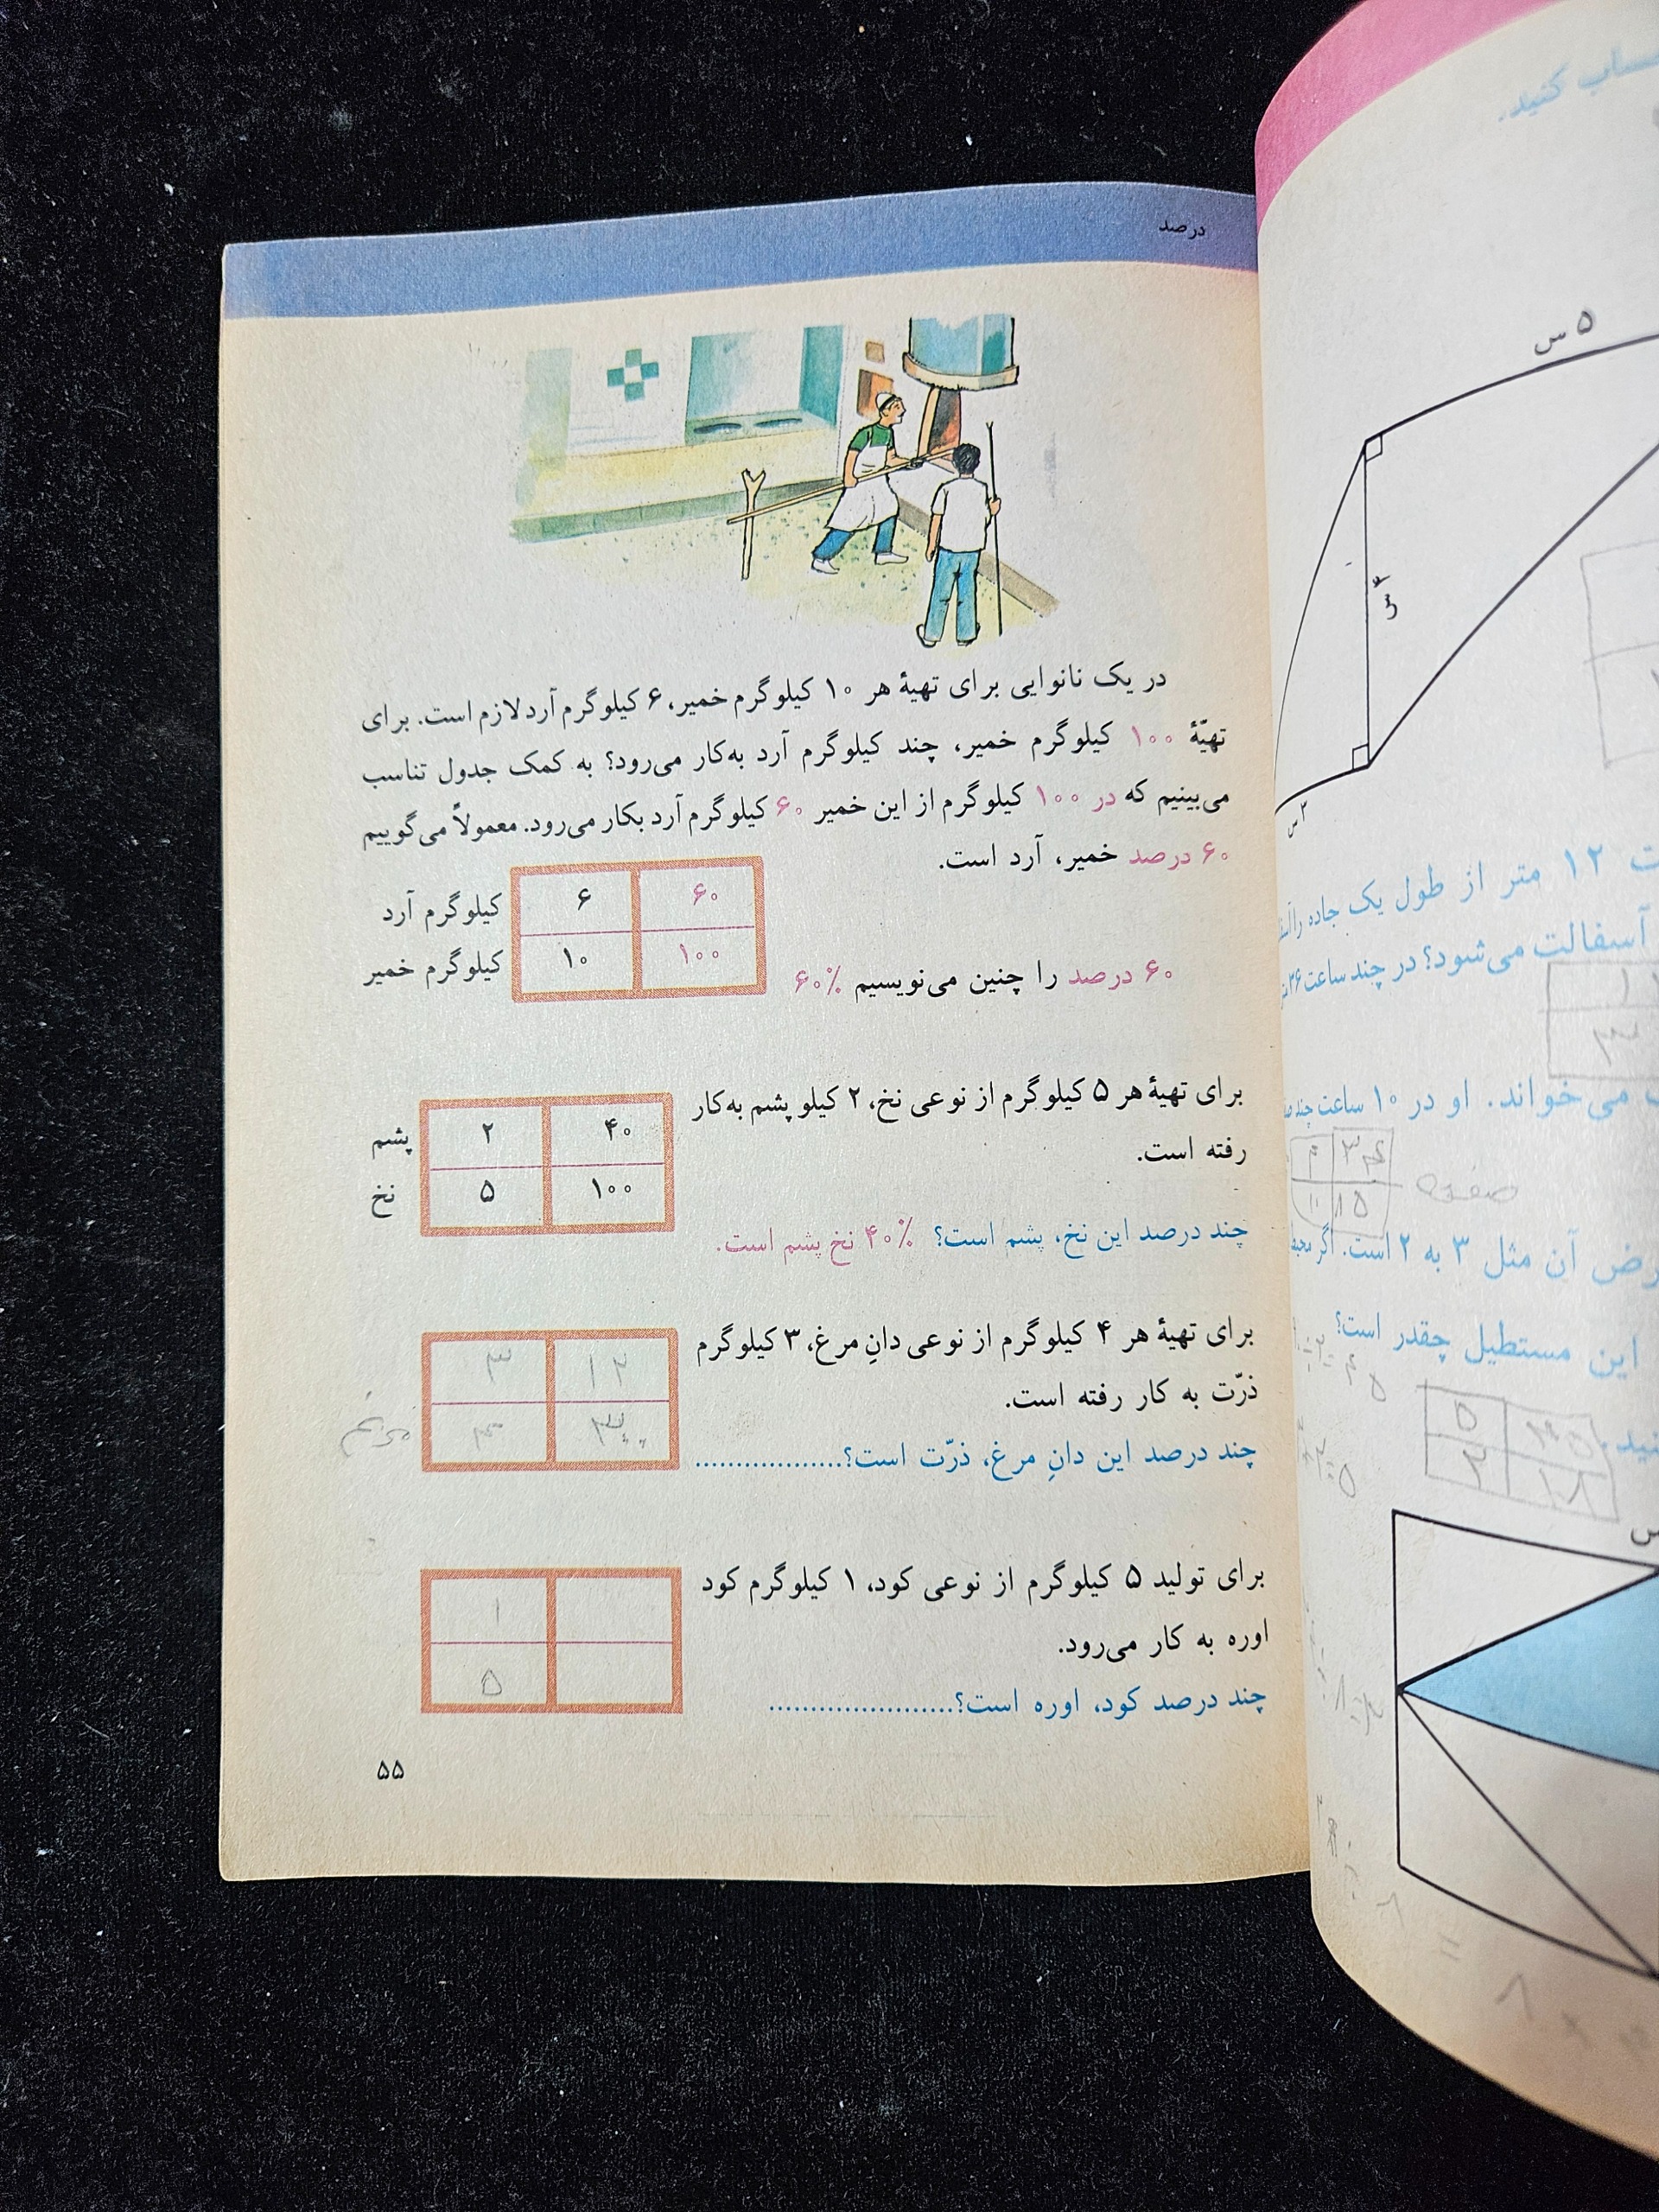 درصد
در یک نانوایی برای تهیهٔ هر ۱۰ کیلوگرم خمیر، ۶ کیلوگرم آرد لازم است. برای
تهیّهٔ ۱۰۰ کیلوگرم خمیر، چند کیلوگرم آرد به‌کار می‌رود؟ به کمک جدول تناسب
می‌بینیم که در ۱۰۰ کیلوگرم از این خمیر ۶۰ کیلوگرم آرد بکار می‌رود. معمولاً می‌گوییم
۶۰ درصد خمیر، آرد است.
کیلوگرم آرد ۶ ۶۰
کیلوگرم خمیر ۱۰ ۱۰۰
۶۰ درصد را چنین می‌نویسیم ۶۰٪
برای تهیهٔ هر ۵ کیلوگرم از نوعی نخ، ۲ کیلو پشم به‌کار
رفته است.
پشم ۲ ۴۰
نخ ۵ ۱۰۰
چند درصد این نخ، پشم است؟ ۴۰٪ نخ پشم است.
برای تهیهٔ هر ۴ کیلوگرم از نوعی دانِ مرغ، ۳ کیلوگرم
ذرّت به کار رفته است.
۳ ۱۲
چند درصد این دانِ مرغ، ذرّت است؟..................
برای تولید ۵ کیلوگرم از نوعی کود، ۱ کیلوگرم کود
اوره به کار می‌رود.
۱
۵
چند درصد کود، اوره است؟......................
۵۵
حساب کنید.
۵ س
۴ س
۲ س
۱۲ متر از طول یک جاده را
آسفالت می‌شود؟ در چند ساعت ۳۶
می‌خواند. او در ۱۰ ساعت چند
صفحه
آن مثل ۳ به ۲ است. اگر
این مستطیل چقدر است؟
۵
۲ ۱۸